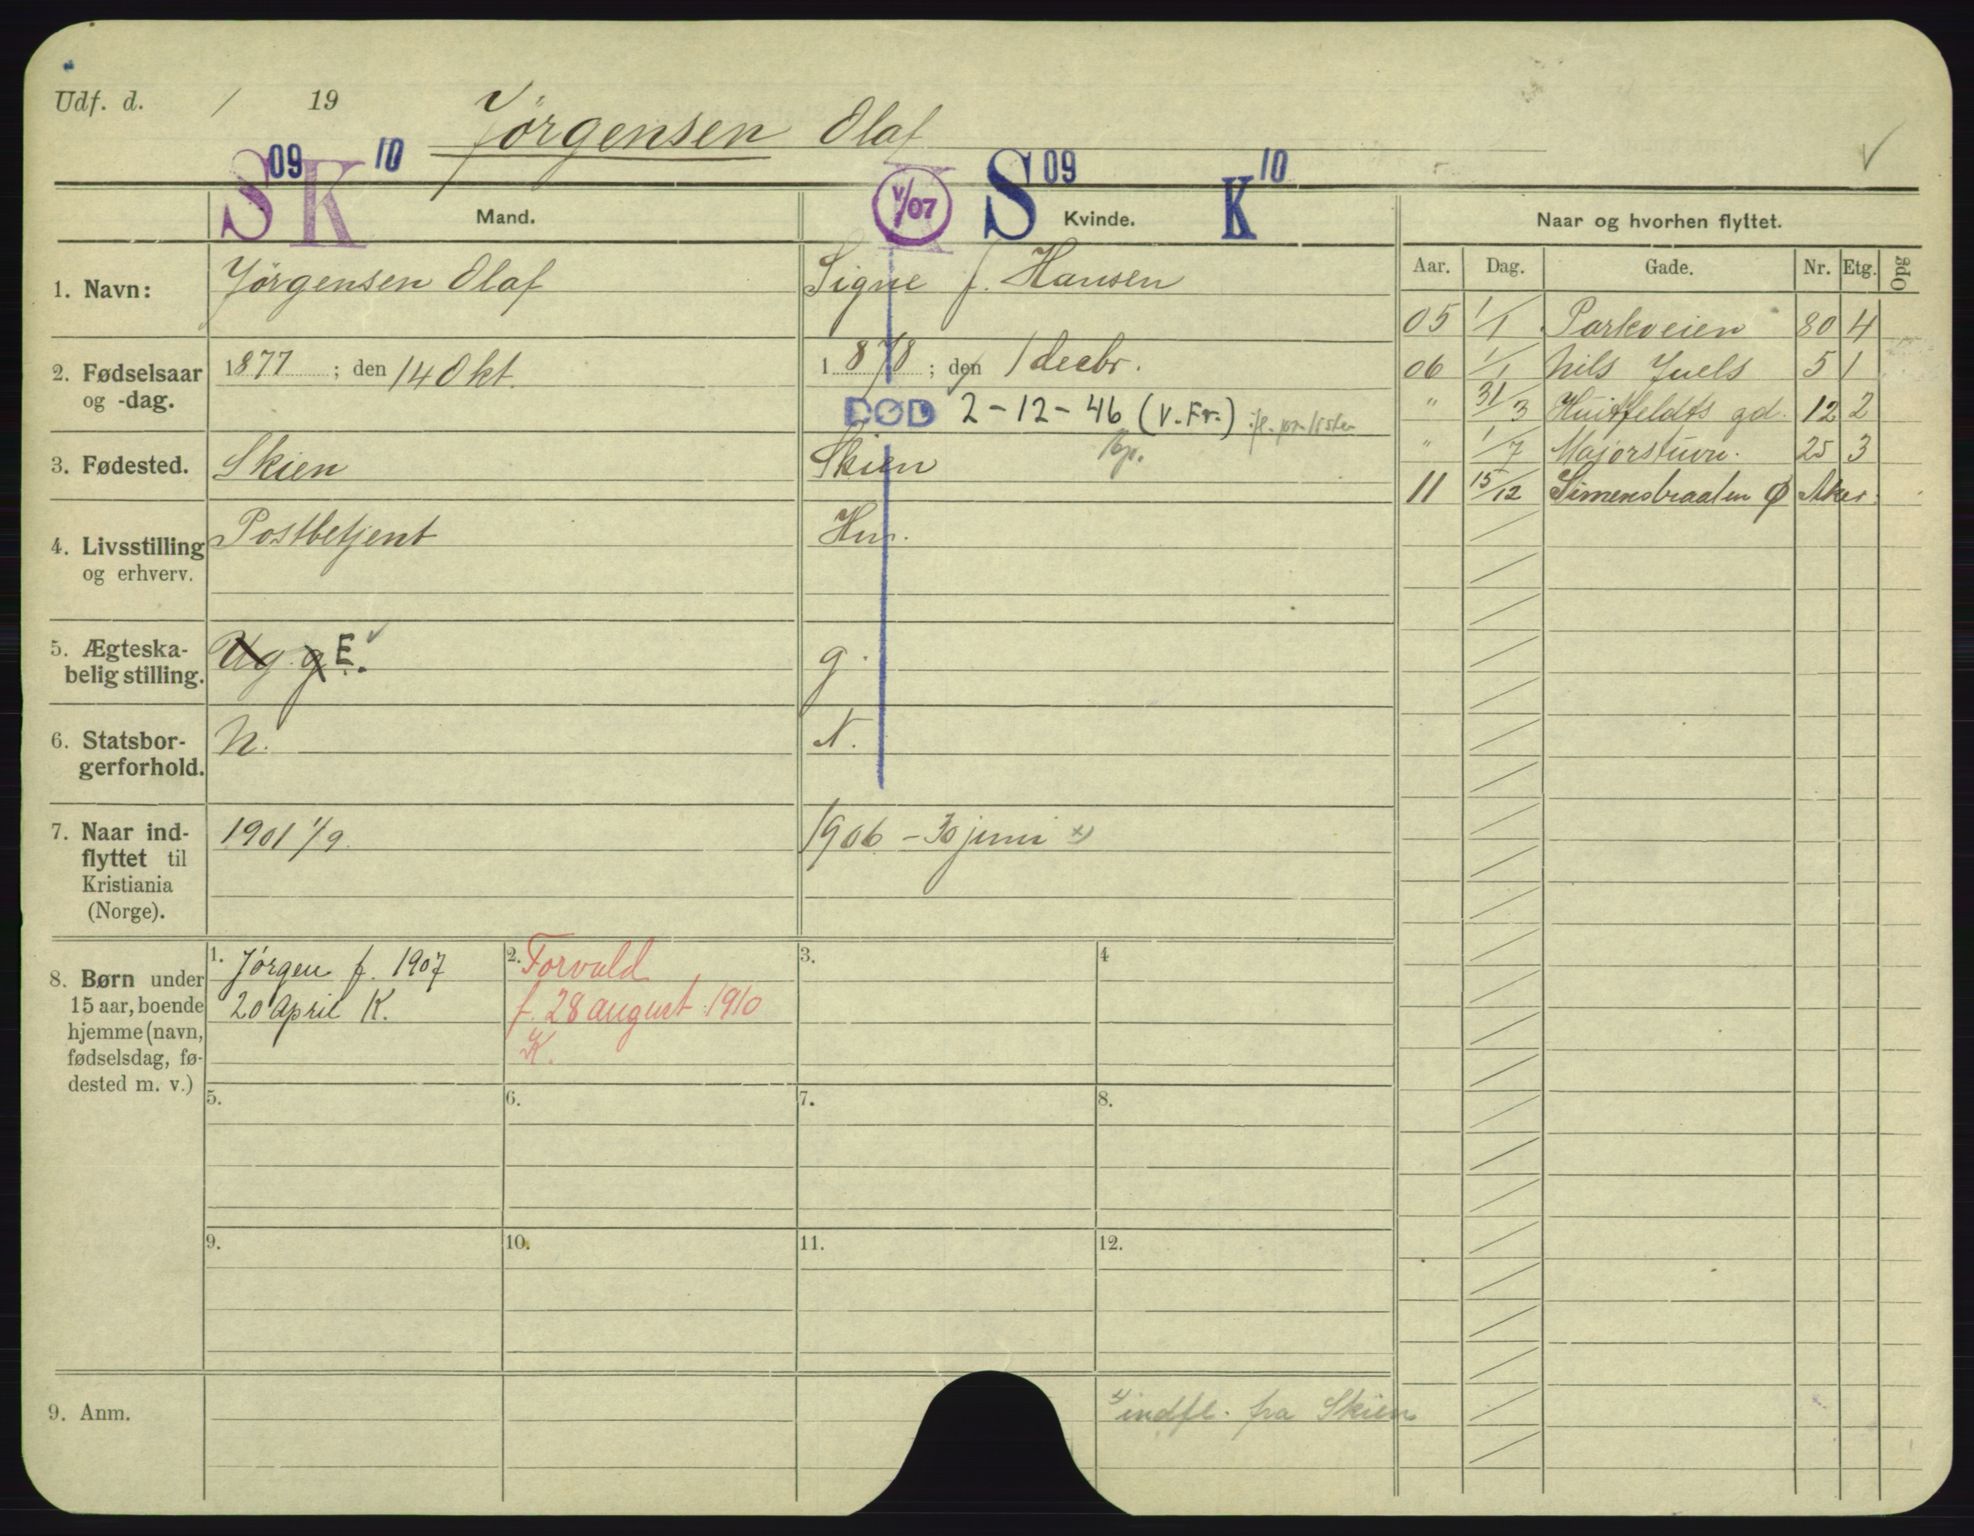 Udf. d. / 19 Jørgensen Olaf
S 09 K 10 V/07 S 09 K 10
Mand. Kvinde. Naar og hvorhen flyttet.
Aar. Dag. Gade. Nr. Etg. Opg
1. Navn: Jørgensen Olaf Signe f. Hansen
05 1/1 Parkveien 80 4
2. Fødselsaar og -dag. 1877 ; den 14 Okt. 1878 ; den 1 decbr.
06 1/1 Nils Juels 5 1
DØD 2-12-46 (V.Fr.)
" 31/3 Huitfeldts gd. 12 2
3. Fødested. Skien Skien
" 1/7 Majorstuvn. 25 3
11 15/12 Simensbraaten Ø Aker.
4. Livsstilling og erhverv. Postbetjent Hu.
5. Ægteska-
belig stilling. Ug. g. E. g.
6. Statsbor-
gerforhold. N. N.
7. Naar ind-
flyttet til
Kristiania
(Norge). 1901 1/9. 1906 - 30 juni x)
8. Børn under
15 aar, boende
hjemme (navn,
fødselsdag, fø-
dested m. v.)
1. Jørgen f. 1907
20 April K.
2. Torvald
f. 28 august 1910
K.
3.
4
5.
6.
7.
8.
9.
10.
11.
12.
9. Anm. x) indfl. fra Skien